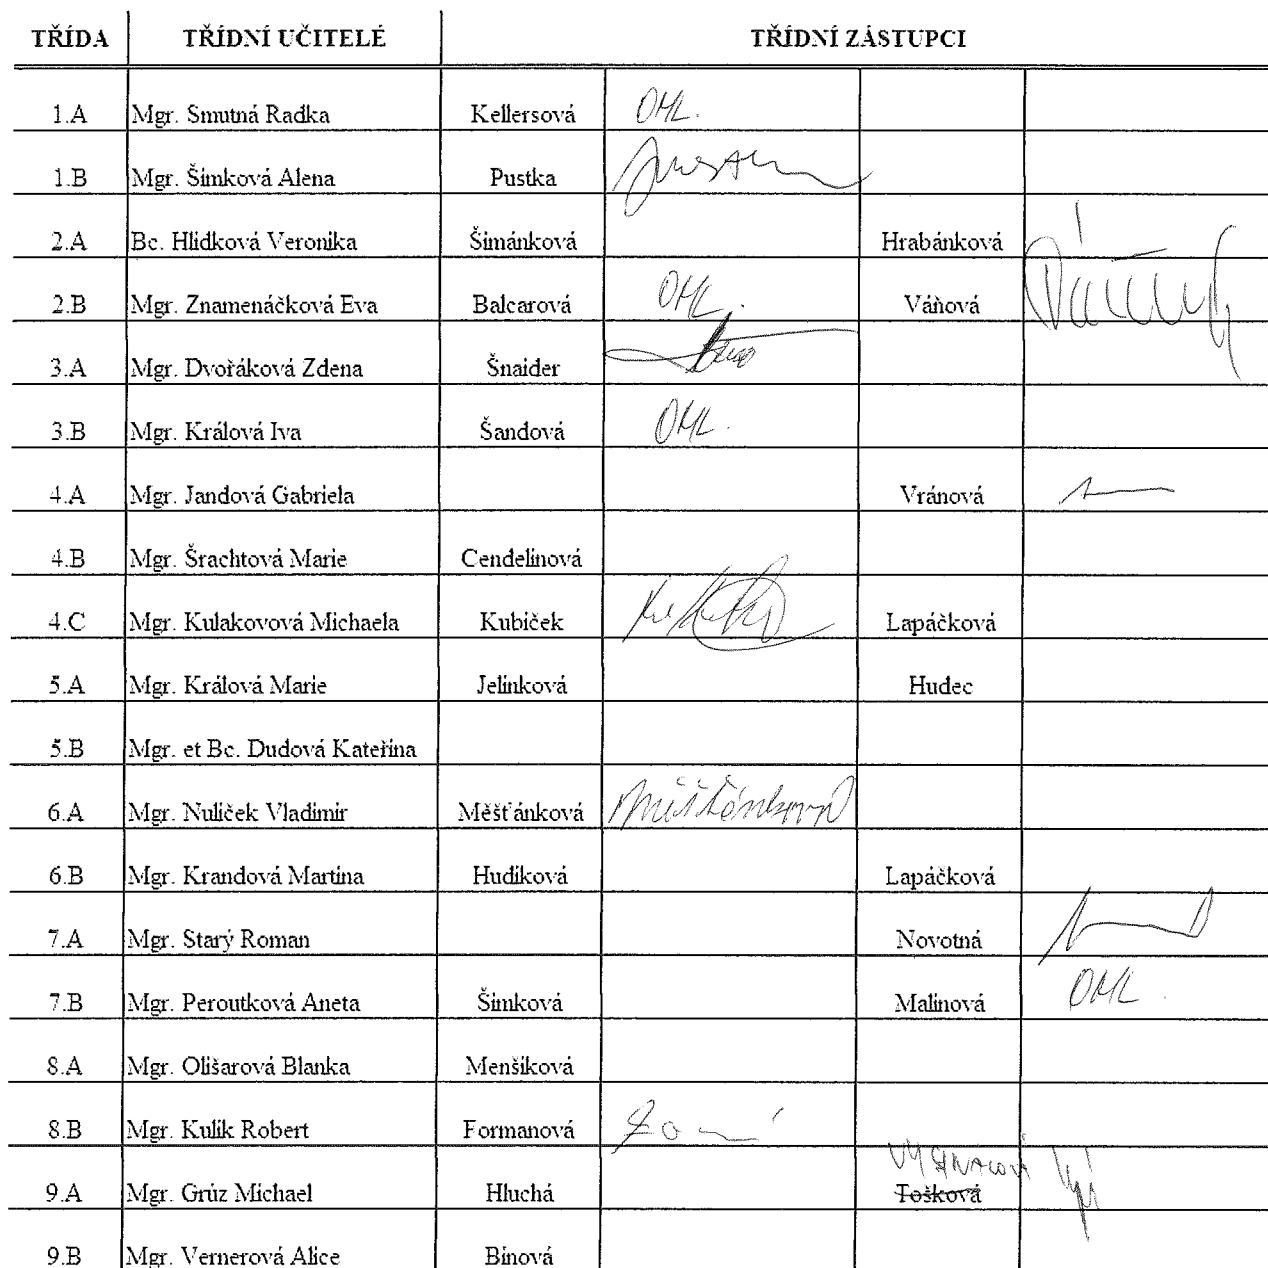 TŘÍDA TŘÍDNÍ UČITELÉ TŘÍDNÍ ZÁSTUPCI
1.A Mgr. Smutná Radka Kellersová OML.
1.B Mgr. Šimková Alena Pustka
2.A Bc. Hlídková Veronika Šimánková Hrabánková
2.B Mgr. Znamenáčková Eva Balcarová OML. Váňová
3.A Mgr. Dvořáková Zdena Šnaider
3.B Mgr. Králová Iva Šandová OML.
4.A Mgr. Jandová Gabriela Vránová
4.B Mgr. Šrachtová Marie Cendelínová
4.C Mgr. Kulakovová Michaela Kubíček Lapáčková
5.A Mgr. Králová Marie Jelínková Hudec
5.B Mgr. et Bc. Dudová Kateřina
6.A Mgr. Nulíček Vladimír Měšťánková Měšťánková
6.B Mgr. Krandová Martina Hudíková Lapáčková
7.A Mgr. Starý Roman Novotná
7.B Mgr. Peroutková Aneta Šimková Malinová OML.
8.A Mgr. Olišarová Blanka Menšíková
8.B Mgr. Kulík Robert Formanová
9.A Mgr. Grúz Michael Hluchá Tošková
9.B Mgr. Vernerová Alice Bínová